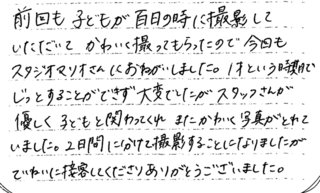 前回も 子どもが百日の時に撮影して
いただいて かわいく撮ってもらったので 今回も
スタジオマリオさんにおねがいしました。1才という時期で
じっとすることができず 大変でしたが スタッフさんが
優しく 子どもと関わってくれ またかわいく写真がとれて
いました。2日間にわけて撮影することになりましたが
ていねいに接客してくださりありがとうございました。